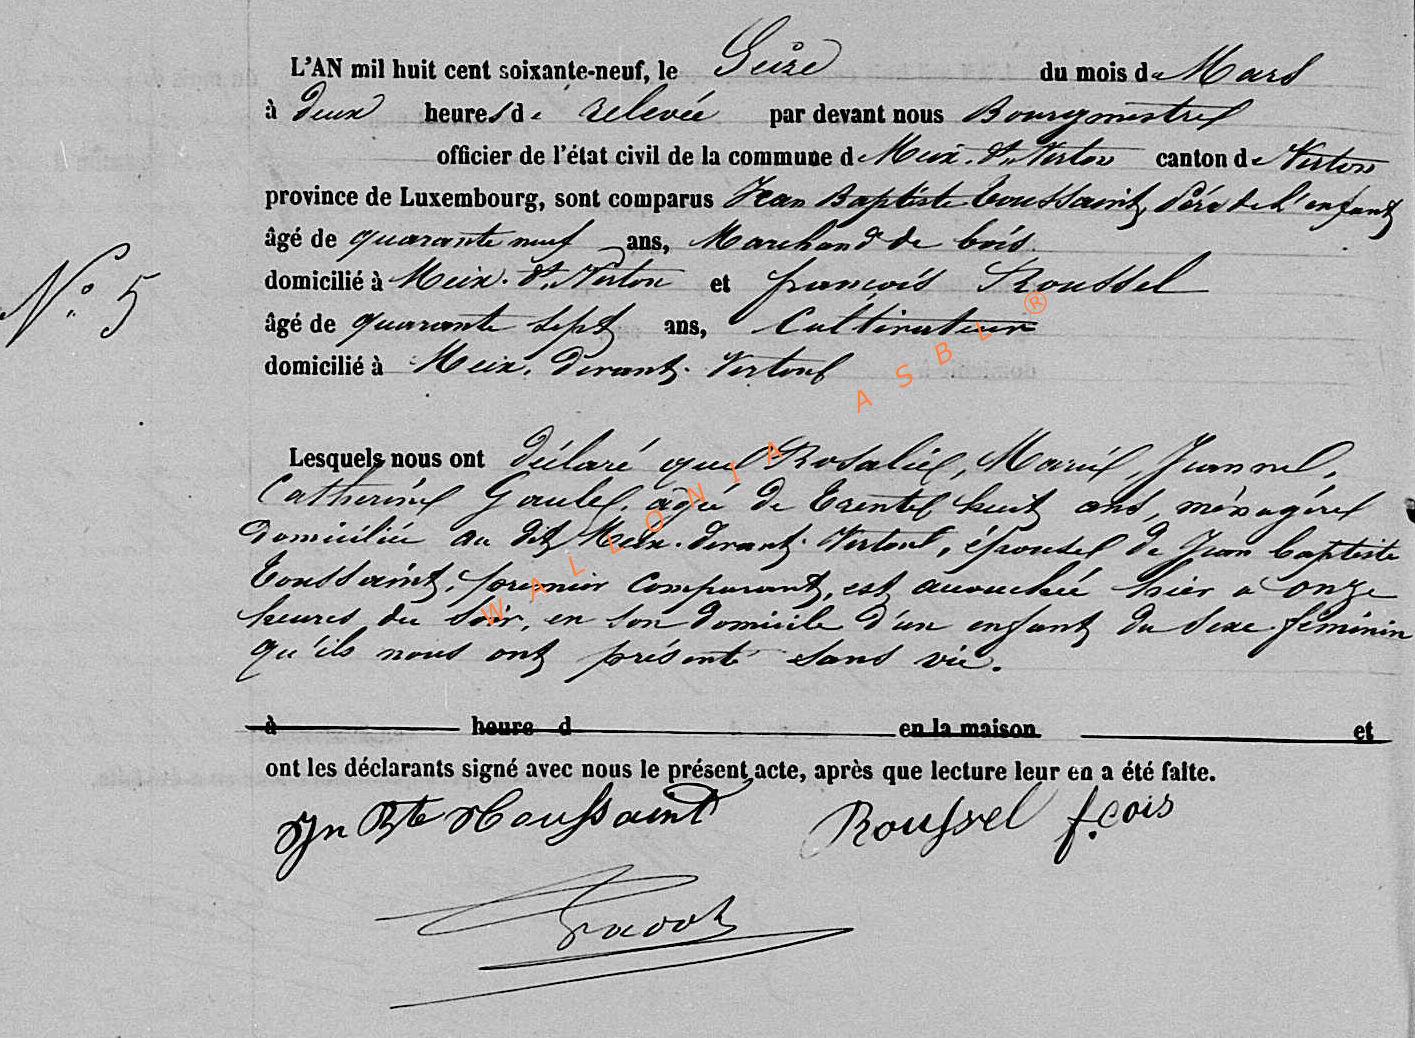 L'AN mil huit cent soixante-neuf, le Seize du mois de Mars
à deux heures de relevée par devant nous Bourgmestre
officier de l'état civil de la commune de Meix-dt-Virton canton de Virton
province de Luxembourg, sont comparus Jean Baptiste Toussaint, Père de l'enfant
âgé de quarante neuf ans, Marchand de bois
domicilié à Meix-dt-Virton et françois Roussel
N° 5
âgé de quarante sept ans, Cultivateur
domicilié à Meix-devant-Virton
Lesquels nous ont déclaré que Rosalie, Marie, Jeanne,
Catherine, agée de trente huit ans, ménagère
domiciliée au dit Meix-devant-Virton, épouse de Jean baptiste
Toussaint, premier comparant, est accouchée hier a onze
heures du soir, en son domicile d'un enfant du sexe féminin
qu'ils nous ont présenté sans vie.
à heure d en la maison et
ont les déclarants signé avec nous le présent acte, après que lecture leur en a été faite.
Jn Bte Toussaint Roussel f.çois
WALLONIA ASBL ®